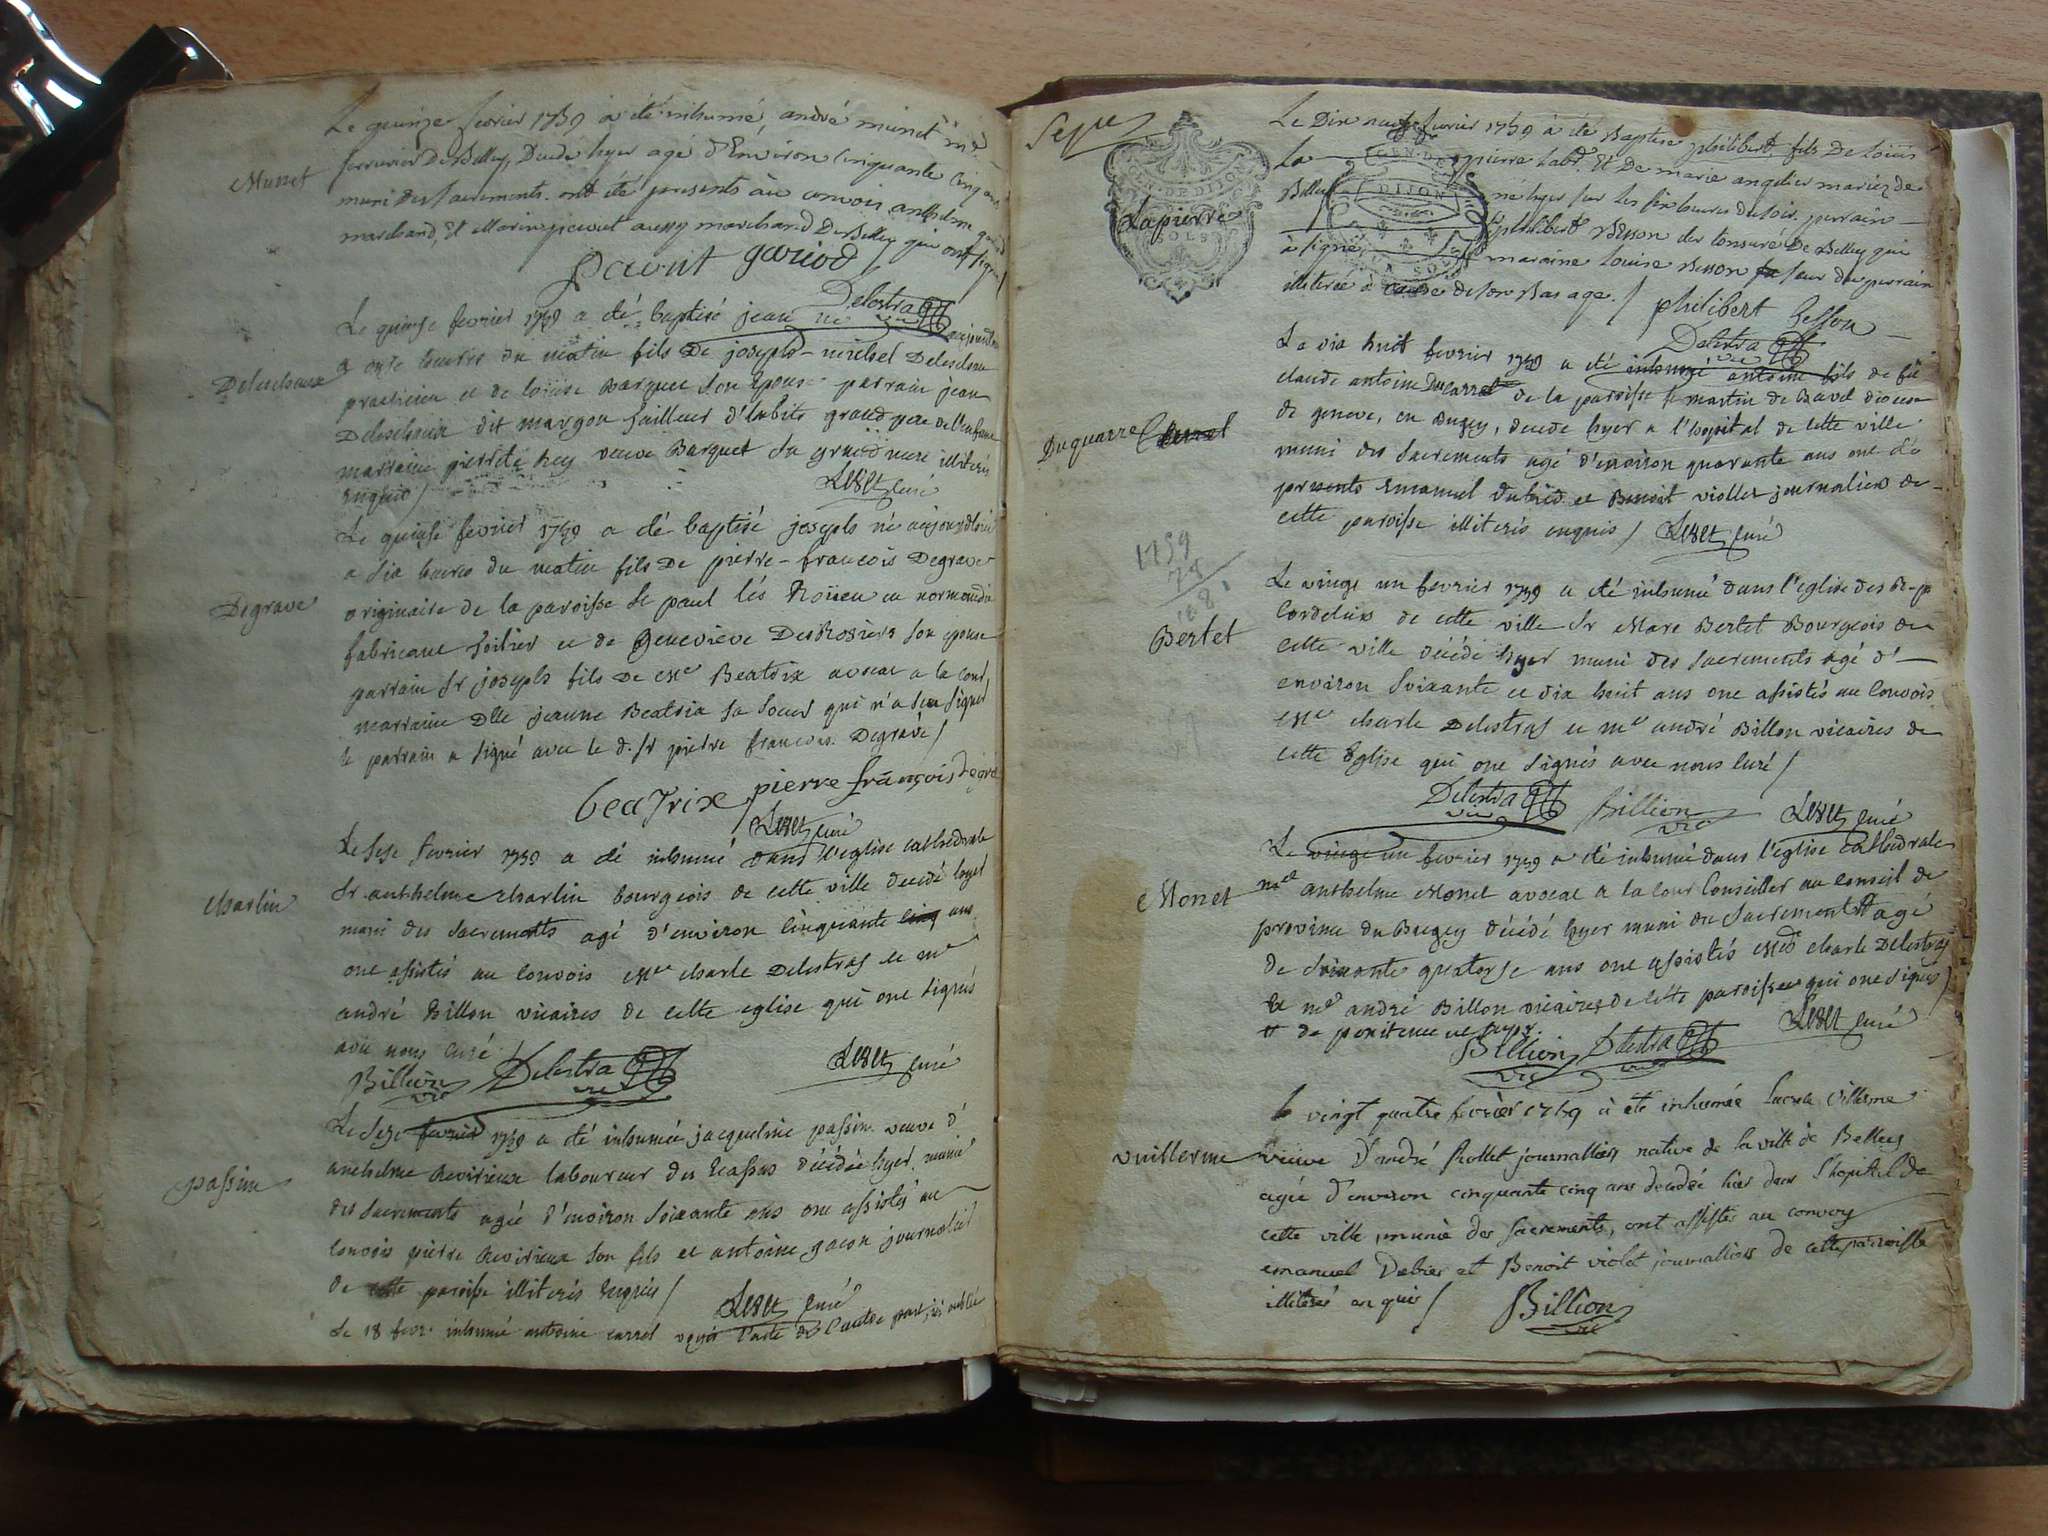 Le quinze fevrier 1759 a été inhumé andré munet me
serrurier De Belley, Decedé hyer agé d'Environ Cinquante Cinq ans
Munet
muni des sacrements. ont été presents au convois anthelme
marchand, Et aussy marchand De Belley qui ont signé /
gariod
Delestra vic
Le quinse fevrier 1759 a été baptisé jean né aujourdhui
a onse heures du matin fils De joseph-michel Deleschaux
Deleschaux
praticien et de loüise Barquet son Epouse parrain jean
Deleschaux dit margon tailleur d'habits grand pere de l'enfant
marraine pierrete hey veuve Barquet sa grand mere illiterés
enquis /
curé
Le quinse fevrier 1759 a été baptisé joseph né aujourdhui
a six heures du matin fils De pierre-francois Degrave
Degrave
originaire de la paroisse St paul lés Roüen en normandie
fabricant et de Genevieve DesRosiers son epouse
parrain Sr joseph fils De Me Beatrix avocat a la cour
marraine Dlle jeanne Beatrix sa soeur qui n'a sceu signer
le parrain a signé avec le d. Sr pierre francois Degrave /
beatrix pierre françois
curé
Le sese fevrier 1759 a été inhumé dans l'eglise cathedrale
Sr anthelme charlin bourgeois de cette ville decedé hyer
charlin
muni des sacrements agé d'environ cinquante cinq ans
ont assistés au convois Mre charle Delestraz et mre
andré Billon vicaires de cette eglise qui ont signés
avec nous curé /
Billion vic Delestra vic curé
Le sese fevrier 1759 a été inhumée jacqueline passin veuve d'
anthelme Revirieux laboureur des Ecassas décédée hyer munie
passin
des sacrements agée d'environ soixante ans ont assistés au
convois pierre Revirieux son fils et antoine gacon journalier
de cette paroisse illiterés enquis /
curé
Le 18 fevr. inhumé antoine carrel voyés l'acte de l'autre part, ici oublié
Sept
Le Dix neuf fevrier 1759 à été Baptisé philibert, fils De loüis
La pierre labr. Et De marie angelier mariez de
Belley né hyer sur les six heures du soir. parrain
Lapierre
philibert Besson cler tonsuré De Belley qui
à signé, Et maraine louise Besson sa seur du parrain
illiterée à cause de son Bas age. / philibert besson
GEN. DE DIJON
Delestra vic
Le dix huit fevrier 1759 a été inhumé antoine fils de fû
claude antoine Ducarrel de la paroisse St martin de Bavel diocese
de geneve, en Bugey, decedé hyer a l'hopital de cette ville
Duquarre Carrel
muni des sacrements agé d'environ quarante ans ont été
presents Emanuel et Benoit viollet journaliers de
cette paroisse illiterés enquis / curé
1759
78
1681
Le vingt un fevrier 1759 a été inhumé dans l'eglise des R-p
Cordeliers de cette ville Sr Marc Bertet Bourgeois de
Bertet
cette ville décédé hyer muni des sacrements agé d'
environ soixante et dix huit ans ont assistés au Convois
Mre charle Delestraz et mre andré Billon vicaires de
cette Eglise qui ont signés avec nous curé /
Delestra vic Billion vic curé
Le vingt un fevrier 1759 a été inhumé dans l'eglise cathedrale
me anthelme Monet avocat a la cour Conseiller au conseil de
Monet
province du Bugey décédé hyer muni du sacrement # agé
de soixante quatorse ans ont assistés Mre charle Delestraz
et mre andré Billon vicaires de cette paroisse qui ont signés /
# de penitence
curé
Billion vic Delestra vic
le vingt quatre fevrier 1759 à eté inhumée
vuillerme
veuve D'andré Rollet journallier native de la ville de Belley
agée d'environ cinquante cinq ans decedée hier dans l'hopital de
cette ville, munie des sacrements, ont assistés au convoy
emanuel et Benoit violet journalliers de cette paroisse
illiterés enquis / Billion vic